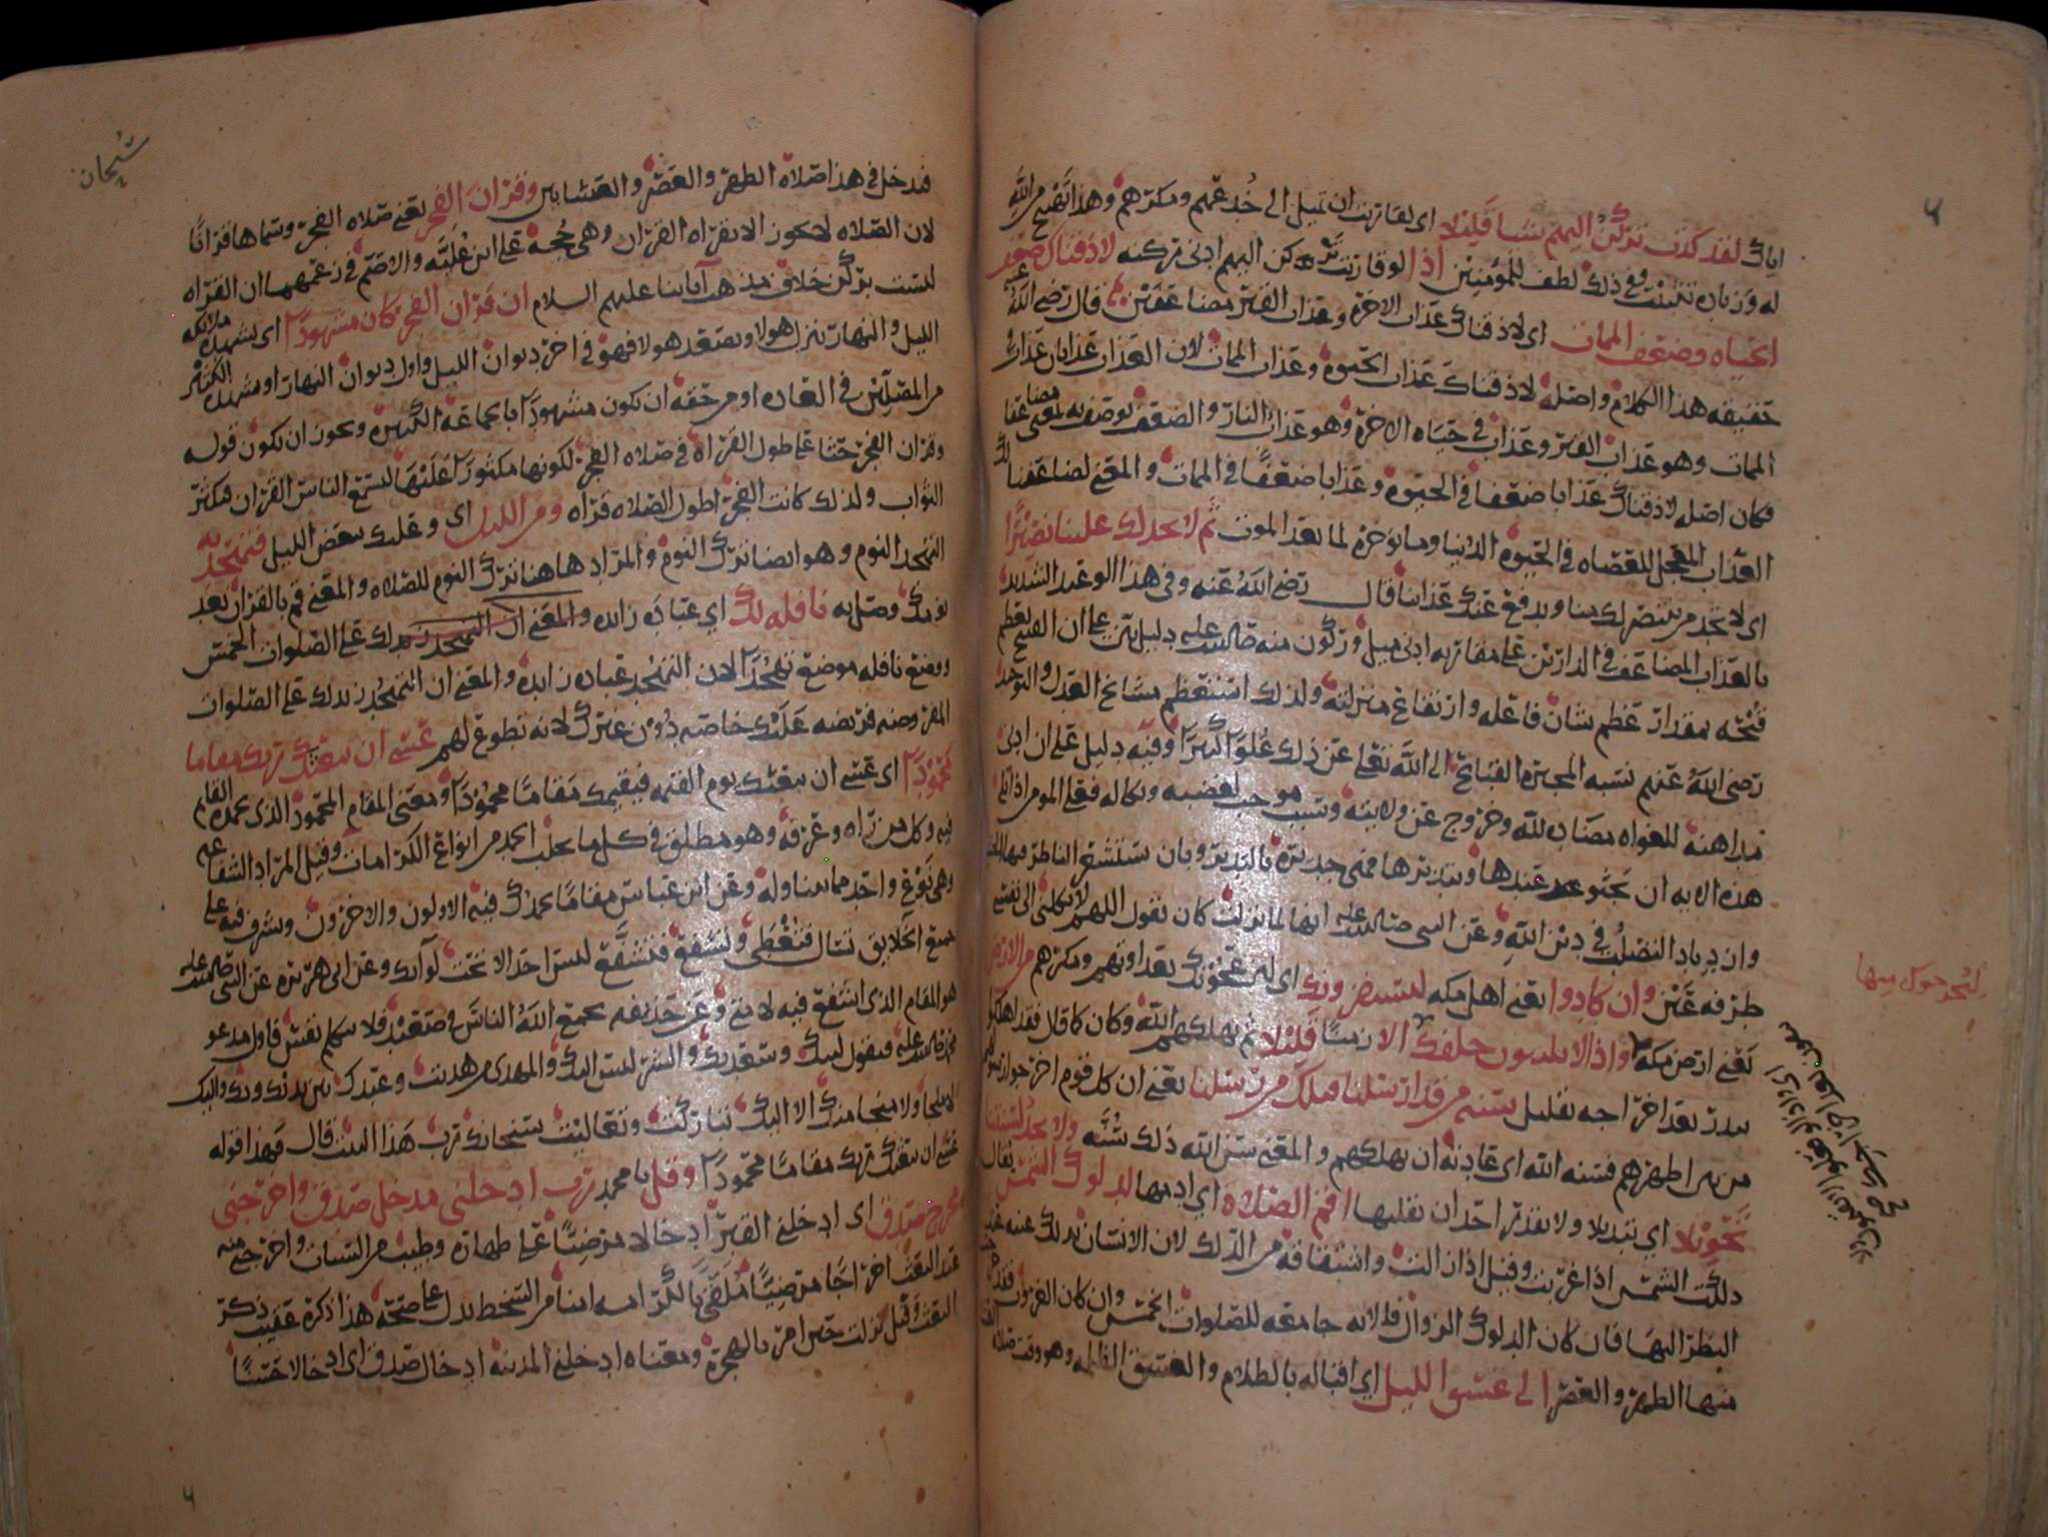 اياك لقد كدت تركن اليهم شيا قليلا اى لقاربت ان تميل الى خدعهم ومكرهم وهذا تهييج من الله
له وزياده تثبيت وفي ذلك لطف للمومنين اذا لو قاربت تركن اليهم ادنى ركنه لاذقناك ضعف
الحياه وضعف الممات اى لاذقناك عذاب الاخرة وعذاب القبر مضاعفين قال رضى الله عنه
حقيقه هذا الكلام واصله لاذقناك عذاب الحيوة وعذاب الممات لان العذاب عذابان عذاب في
الممات وهو عذاب القبر وعذاب في حياه الاخرة وهو عذاب النار والضعف يوصف به بمعنى مضاعفا
فكان اصله لاذقناك عذابا ضعفا في الحيوة وعذابا ضعفا في الممات والمعنى لضاعفنا لك
العذاب المعجل للعصاه في الحيوة الدنيا وما نوخره لما بعد الموت ثم لا تجد لك علينا نصيرا
اى لا تجد من ينتصر لك منا ويدفع عنك عذابنا قال رضى الله عنه وفي هذا الوعيد الشديد
بالعذاب المضاعف في الدارين على مقاربه ادنى ميل وركون منه صلى الله عليه دليل بين على ان القبيح يعظم
قبحه بمقدار عظم شان فاعله وارتفاع منزلته ولذلك استعظم مشايخ العدل والتوحيد
رضى الله عنهم نسبه المجبرة القبائح الى الله تعالى عن ذلك علوا كبيرا وفيه دليل على ان ادنى
مداهنة للغواه مضاده لله وخروج عن ولايته وسبب موجب لغضبه ونكاله فعلى المومن اذا تلى
هذه الايه ان يجثو عندها ويتدبرها فهى جديرة بالتدبر وبان يستشعر الناظر فيها الخشيه
وازدياد التصلب في دين الله وعن النبى صلى الله عليه انها لما نزلت كان يقول اللهم لا تكلنى الى نفسى
طرفه عين وان كادوا يعنى اهل مكه ليستفزونك اى ليزعجونك بعداوتهم ومكرهم من الارض
يعنى ارض مكه واذا لا يلبثون خلفك الا زمنا قليلا ثم يهلكهم الله وكان كما قال فقد اهلكوا
ببدر بعد اخراجه بقليل سنة من قد ارسلنا قبلك من رسلنا يعنى ان كل قوم اخرجوا رسولهم
من بين اظهرهم فسنه الله اى عادته ان يهلكهم والمعنى سن الله ذلك سنه ولا تجد لسنتنا
تحويلا اى تبديلا ولا يقدر احد ان يقلبها اقم الصلاة اى ادمها لدلوك الشمس يقال
دلكت الشمس اذا غربت وقيل اذا زالت واشتقاقه من الدلك لان الانسان يدلك عينه عند
النظر اليها فان كان الدلوك الزوال فالايه جامعه للصلوات الخمس وان كان الغروب فقد خرج
منها الظهر والعصر الى غسق الليل اى اقباله بالظلام والغسق الظلمه وهو وقت صلاه العشا
فدخل في هذا صلاة الظهر والعصر والعشايين وقران الفجر يعنى صلاه الفجر وسماها قرانا
لان الصلاه لا تكون الا بقراه القران وهى حجة على ابن عليه والاصم في زعمهما ان القراه
ليست بركن خلاف مذهب آبائنا عليهم السلام ان قران الفجر كان مشهودا اى يشهده ملائكه
الليل والنهار ينزل هولا ويصعد هولا فهو في اخر ديوان الليل واول ديوان النهار او يشهده الكثير
من المصلين في العاده او من حقه ان يكون مشهودا بالجماعة الكثيرة ويجوز ان يكون قوله
وقران الفجر حثا على طول القراة في صلاه الفجر لكونها مكثورا عليها ليسمع الناس القران فيكثر
الثواب ولذلك كانت الفجر اطول الصلاه قراه ومن الليل اى وعليك بعض الليل فتهجد به
التهجد النوم وهو ايضا ترك النوم والمراد هاهنا ترك النوم للصلاه والمعنى قم بالقران بعد
نومك وصل به نافله لك اي عبادة زايده والمعنى ان التهجد زيد لك على الصلوات الخمس
ووضع نافله موضع تهجدا لان التهجد عباده زايده والمعنى ان التهجد زيد لك على الصلوات
المفروضه فريضه عليك خاصه دون غيرك لانه تطوع لهم عسى ان يبعثك ربك مقاما
محمودا اى عسى ان يبعثك يوم القيمه فيقيمك مقاما محمودا ومعنى المقام المحمود الذى يحمده القايم
فيه وكل من راه وعرفه وهو مطلق في كل ما يجلب الحمد من انواع الكرامات وقيل المراد الشفاعه
وهى نوع واحد مما يتناوله وعن ابن عباس مقاما يحمدك فيه الاولون والاخرون وتشرف فيه على
جميع الخلايق تسال فتعطى وتشفع فتشفع ليس احد الا تحت لوآئك وعن ابى هريرة عن النبى صلى الله عليه
هو المقام الذى اشفع فيه لامتى وعن حذيفه يجمع الله الناس في صعيد فلا تتكلم نفس فاول مدعو
محمد صلى الله عليه فيقول لبيك وسعديك والشر ليس اليك والمهدى من هديت وعبدك بين يديك وبك واليك
لا ملجا ولا منجا منك الا اليك تباركت وتعاليت سبحانك رب هذا البيت قال فهذا قوله
عسى ان يبعثك ربك مقاما محمودا وقل يا محمد رب ادخلنى مدخل صدق واخرجنى
مخرج صدق اى ادخلنى القبر ادخالا مرضيا على طهارة وطيب من السيات واخرجنى منه
عند البعث اخراجا مرضيا ملقى بالكرامه امنا من السخط يدل على صحته هذا ذكره عقيب ذكر
البعث وقيل نزلت حين امر بالهجرة ومعناه ادخلنى المدينه ادخال صدق اى ادخالا حسنا